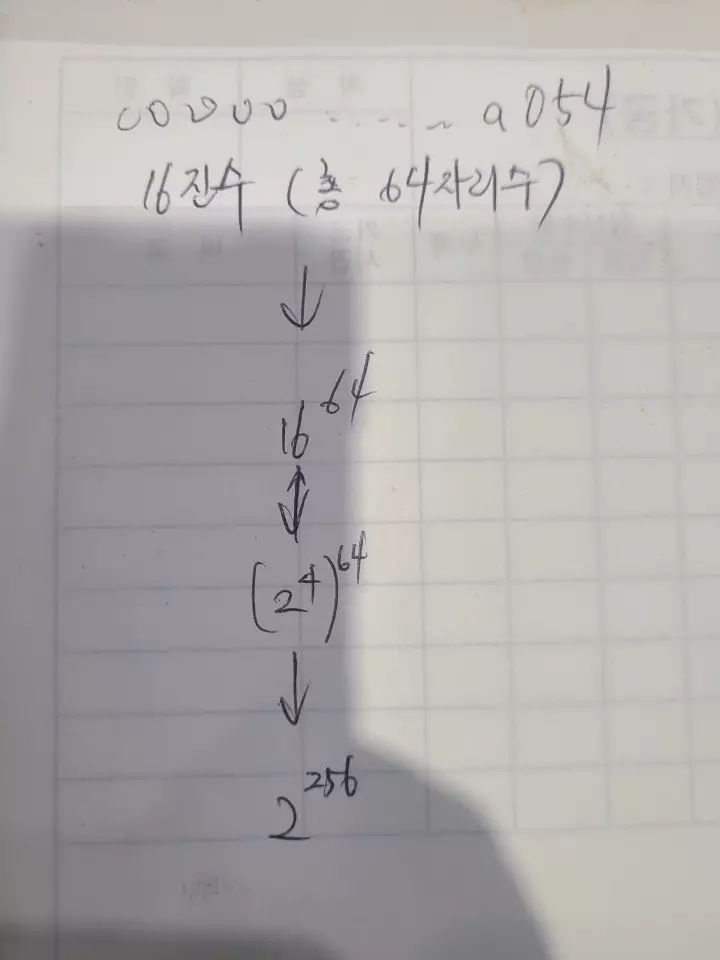 00000 ...... a054
16진수 (총 64자리수)
↓
16^64
↕
(2^4)^64
↓
2^256